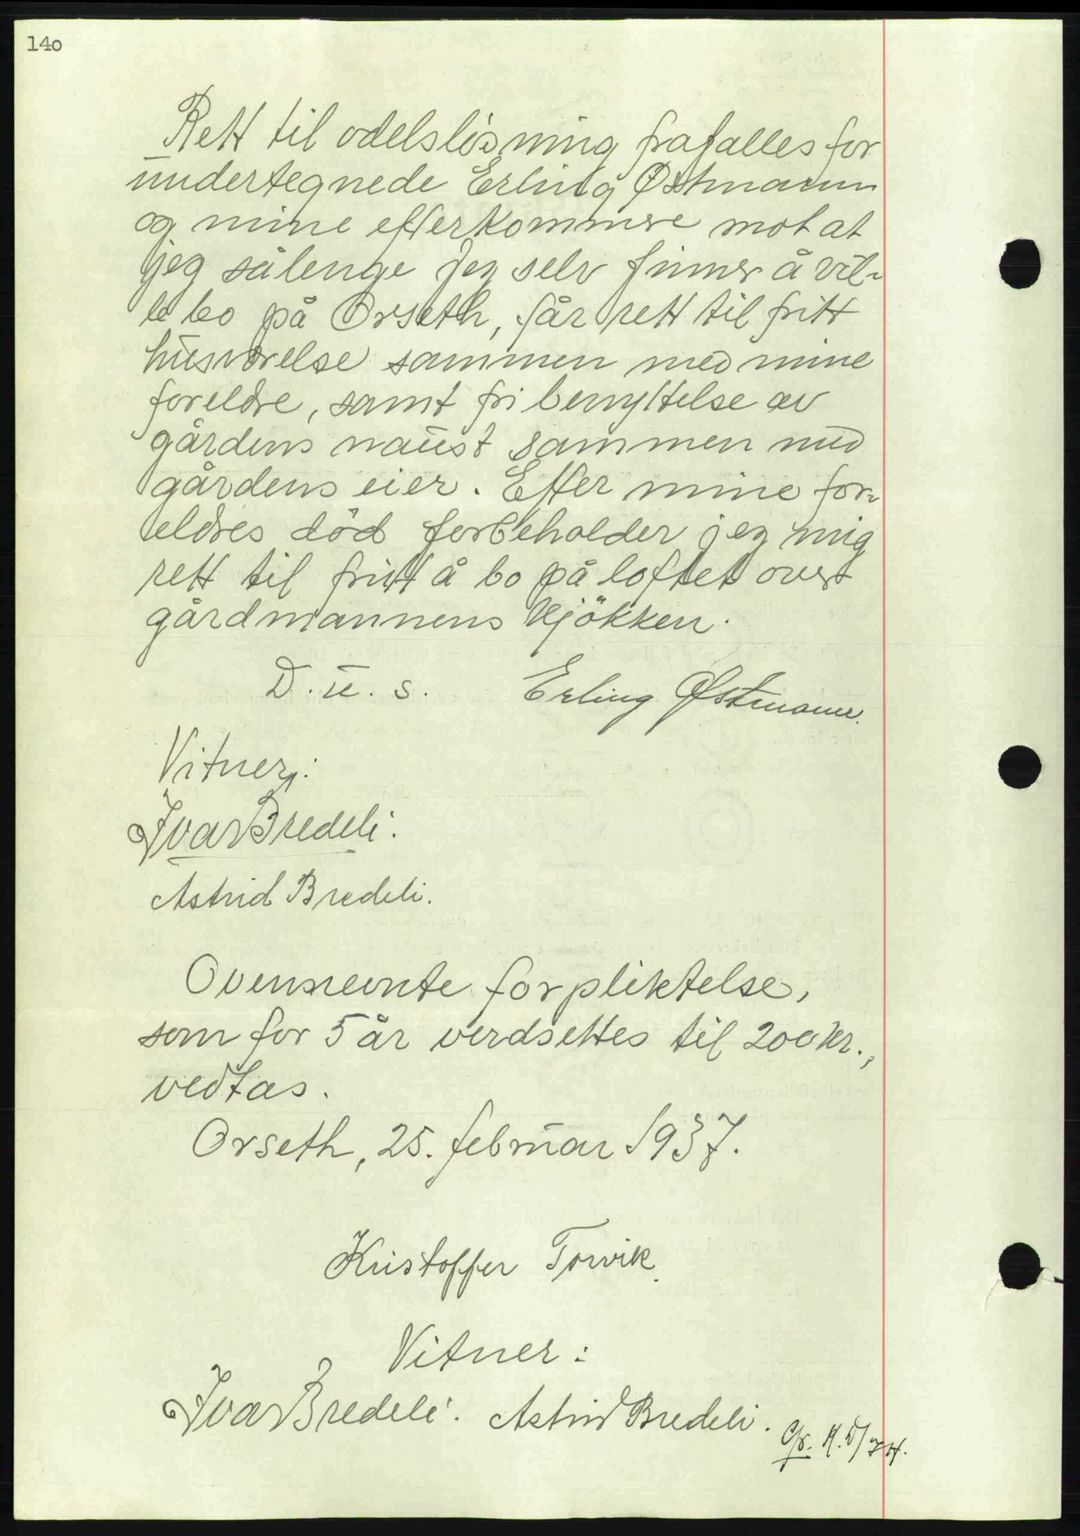 140
Rett til odelslösning frafalles for
undertegnede Erling Østmann
og mine efterkommere mot at
jeg sålenge jeg selv finner å vil-
le bo på Orseth, får rett til fritt
husværelse sammen med mine
foreldre, samt fri benyttelse av
gårdens naust sammen med
gårdens eier. Efter mine for-
eldres död forbeholder jeg mig
rett til fritt å bo på loftet over
gårdmannens kjökken.
D. u. s. Erling Østmann.
Vitner:
Ivar Bredeli.
Astrid Bredeli.
Ovennevnte forpliktelse,
som for 5 år verdsettes til 200 kr.,
vedtas.
Orseth, 25. februar 1937.
Kristoffer Torvik.
Vitner:
Ivar Bredeli. Astrid Bredeli.